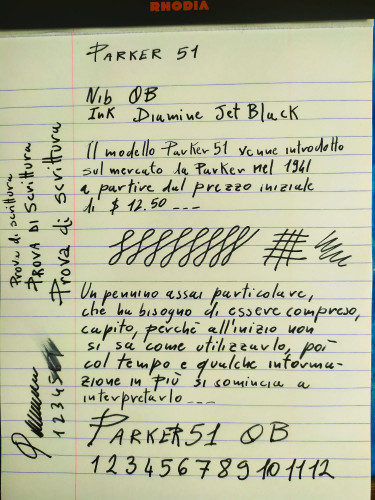 RHODIA
PARKER 51
Nib OB
Ink Diamine Jet Black
Il modello Parker 51 venne introdotto
sul mercato la Parker nel 1941
a partire dal prezzo iniziale
di $ 12.50 ---
Un pennino assai particolare,
che ha bisogno di essere compreso,
capito, perchè all'inizio non
si sa come utilizzarlo, poi
col tempo e qualche informa-
zione in più si comincia a
interpretarlo ---
PARKER 51 OB
1 2 3 4 5 6 7 8 9 10 11 12
Prova di scrittura
PROVA DI Scrittura
Prova di scrittura
1 2 3 4 5